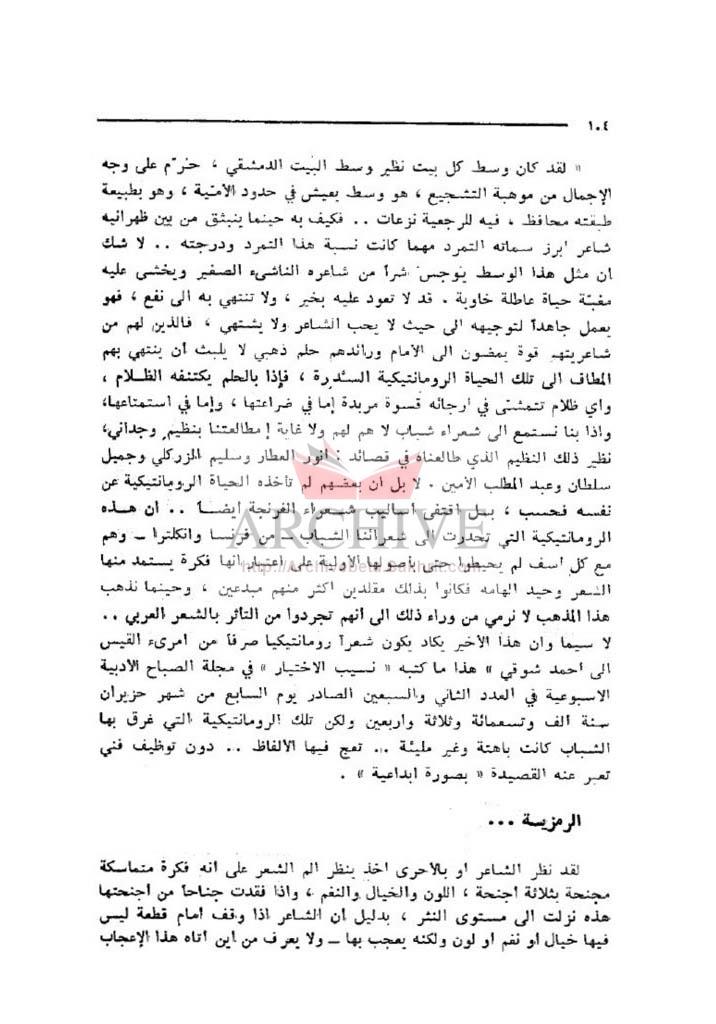 ١٠٤
« لقد كان وسط كل بيت نظير وسط البيت الدمشقي ، حرم على وجه
الإجمال من موهبة التشجيع ، هو وسط يعيش في حدود الأمنية ، وهو بطبيعة
طبقته محافظ ، فيه للرجعية نزعات .. فكيف به حينما ينبثق من بين ظهرانيه
شاعر ابرز سماته التمرد مهما كانت نسبة هذا التمرد ودرجته .. لا شك
ان مثل هذا الوسط يتوجس شراً من شاعره الناشىء الصغير ويخشى عليه
مغبّة حياة عاطلة خاوية . قد لا تعود عليه بخير ، ولا تنتهي به الى نفع ، فهو
يعمل جاهداً لتوجيهه الى حيث لا يحب الشاعر ولا يشتهي ، فالذين لهم من
شاعريتهم قوة يمضون الى الأمام ورائدهم حلم ذهبي لا يلبث أن ينتهي بهم
المطاف الى تلك الحياة الرومانتيكية السادرة ، فإذا بالحلم يكتنفه الظلام ،
واي ظلام تتمشى في ارجائه قسوة مريدة إما في ضراعتها ، وإما في استمتاعها،
واذا بنا نستمع الى شعراء شباب لا هم لهم ولا غاية إلا مطالعتنا بنظيم وجداني،
نظير ذلك النظيم الذي طالعناه في قصائد : أنور العطار وسليم الزركلي وجميل
سلطان وعبد المطلب الأمين . لا بل ان بعضهم لم تأخذه الحياة الرومانتيكية عن
نفسه فحسب ، بل اقتفى أساليب شعراء الفرنجة أيضاً .. ان هذه
ARCHIVE
الرومانتيكية التي تحدرت الى شعرائنا الشباب ــ من فرنسا وانكلترا ــ وهم
http://Archivebeta.Sakhrit.com
مع كل اسف لم يحيطوا حتى بأصولها الأولية على اعتبار انها فكرة يستمد منها
الشعر وحيد الهامه فكانوا بذلك مقلدين اكثر منهم مبدعين ، وحينما نذهب
هذا المذهب لا نرمي من وراء ذلك الى انهم تجردوا من التأثر بالشعر العربي ..
لا سيما وان هذا الأخير يكاد يكون شعراً رومانتيكيا صرفاً من امرىء القيس
الى احمد شوقي » هذا ما كتبه « نسيب الاختيار » في مجلة الصباح الأدبية
الاسبوعية في العدد الثاني والسبعين الصادر يوم السابع من شهر حزيران
سنة الف وتسعمائة وثلاثة واربعين ولكن تلك الرومانتيكية التي غرق بها
الشباب كانت باهتة وغير مليئة .. تعج فيها الألفاظ .. دون توظيف فني
تعبر عنه القصيدة « بصورة ابداعية » .
الرمزية ...
لقد نظر الشاعر او بالأحرى اخذ ينظر الم الشعر على انه فكرة متماسكة
مجنحة بثلاثة أجنحة ، اللون والخيال والنغم ، واذا فقدت جناحاً من اجنحتها
هذه نزلت الى مستوى النثر ، بدليل أن الشاعر اذا وقف أمام قطعة ليس
فيها خيال او نغم او لون ولكنه يعجب بها ــ ولا يعرف من اين أتاه هذا الإعجاب